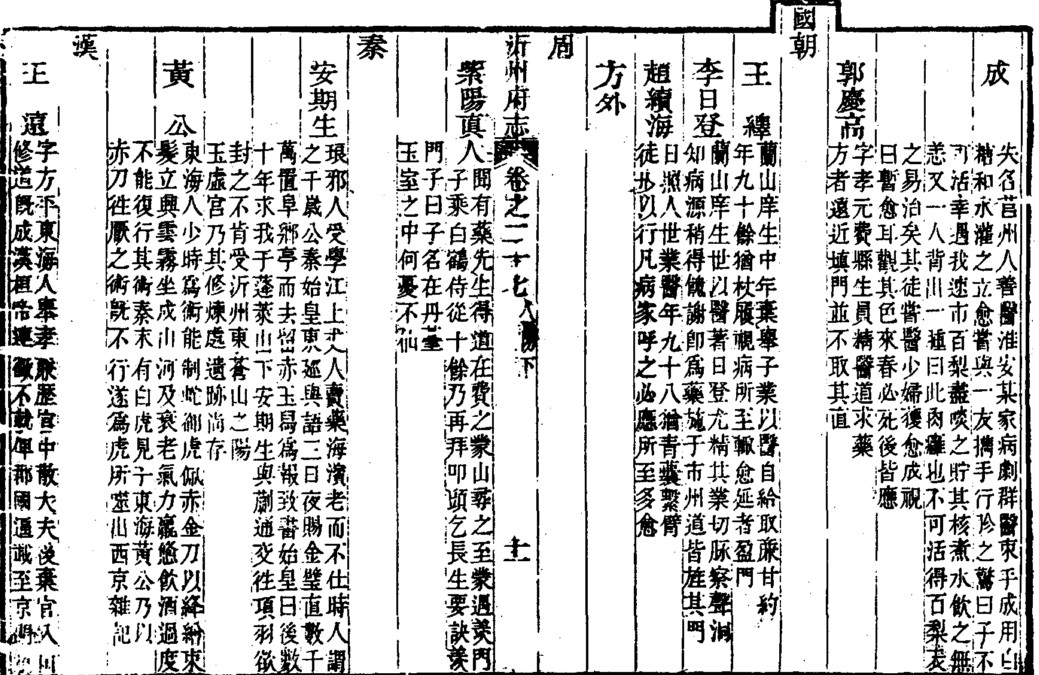 成 失名莒州人善醫淮安某家病劇群醫束手成用白
糖和水灌之立愈嘗與一友擕手行胗之驚曰子不
可活幸遇我速市百梨盡啖之貯其核煮水飲之無
恙又一人背出一瘇曰此肉癰也不可活得百梨友
之易治矣其徒嘗醫少婦獲愈成視
曰暫愈耳觀其色來春必死後皆應
郭慶高 字孝元費縣生員精醫道求藥
方者遠近填門並不取其直
國朝
王繹 蘭山庠生中年棄舉子業以醫自給取廉甘約
年九十餘猶杖履視病所至輒愈延者盈門
李日登 蘭山庠生世以醫著日登尤精其業切脉察聲洞
知病源稍得餽謝即爲藥施于市州道皆旌其門
趙續海 日照人世業醫年九十八猶青囊繫臂
徒步以行凡病家呼之必應所至多愈
方外
周
沂州府志 卷之二十七 人物下 十一
紫陽真人 聞有藥先生得道在費之蒙山尋之至蒙遇羨門
子乘白鶴侍從十餘乃再拜叩頭乞長生要訣羨
門子曰子名在丹臺
玉室之中何憂不仙
秦
安期生 琅邪人受學江上丈人賣藥海濱老而不仕時人謂
之千歲公秦始皇東巡與語三日夜賜金璧直數千
萬置阜鄉亭而去留赤玉舄爲報致書始皇曰後數
十年求我于蓬萊山下安期生與蒯通交徃項羽欲
封之不肯受沂州東蒼山之陽
玉虛宮乃其修煉處遺跡尚存
黃公 東海人少時爲術能制蛇御虎佩赤金刀以絳繒束
髮立興雲霧坐成山河及衰老氣力羸憊飲酒過度
不能復行其術秦末有白虎見于東海黃公乃以
赤刀徃厭之術旣不行遂爲虎所噬出西京雜記
漢
王遠 字方平東海人舉孝廉歷官中散大夫後棄官入
修道旣成漢桓帝連徵不就郡國逼載至京